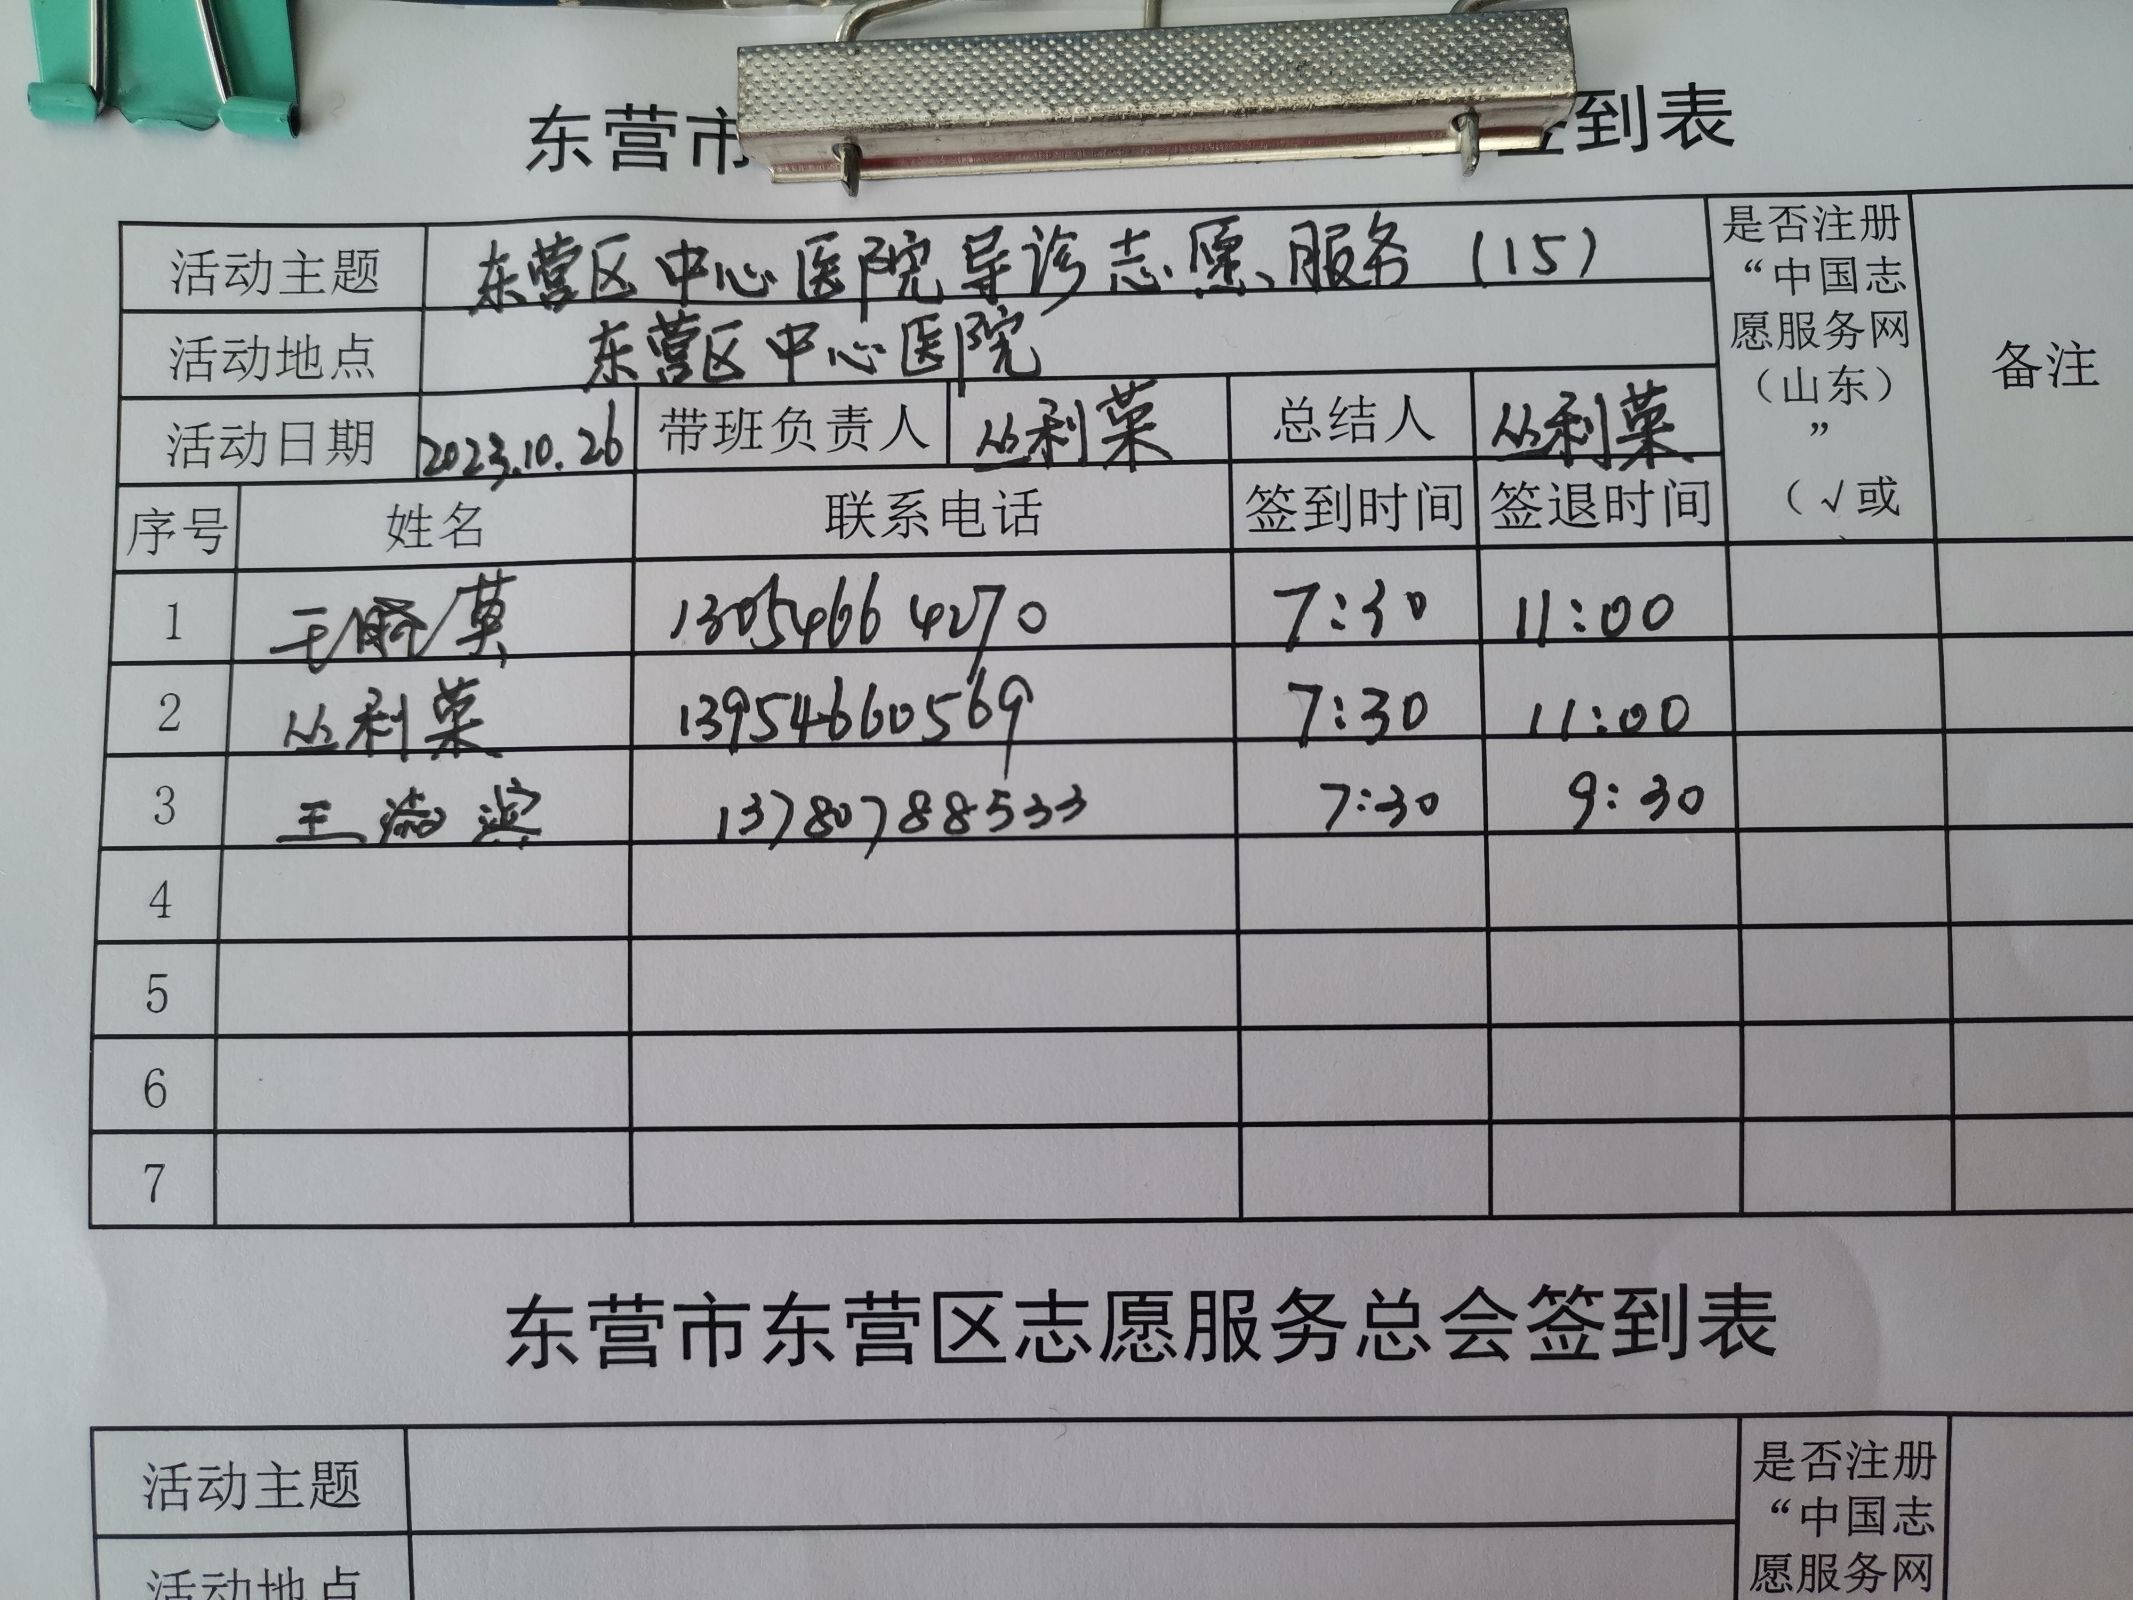 东营市 签到表
活动主题 东营区中心医院导诊志愿服务（15）
是否注册“中国志愿服务网（山东）”（√或
备注
活动地点 东营区中心医院
活动日期 2023.10.26 带班负责人 丛利荣 总结人 丛利荣
序号 姓名 联系电话 签到时间 签退时间
1 王 英 13054664270 7:30 11:00
2 丛利荣 13954660569 7:30 11:00
3 王 滨 13780788533 7:30 9:30
4
5
6
7
东营市东营区志愿服务总会签到表
活动主题
是否注册
“中国志
愿服务网
活动地点